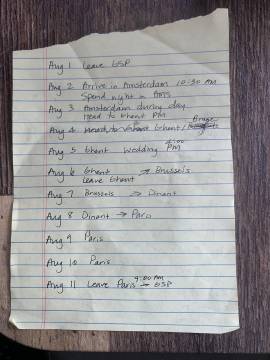 Aug 1 Leave GSP
Aug 2 Arrive in Amsterdam 10:30 AM
Spend night in AMS
Aug 3 Amsterdam during day
Head to Ghent PM
Aug 4 Ghent / Bruge
Aug 5 Ghent Wedding 2:00 PM
Aug 6 Ghent → Brussels
Leave Ghent
Aug 7 Brussels → Dinant
Aug 8 Dinant → Paris
Aug 9 Paris
Aug 10 Paris
Aug 11 Leave Paris 9:00 AM → GSP